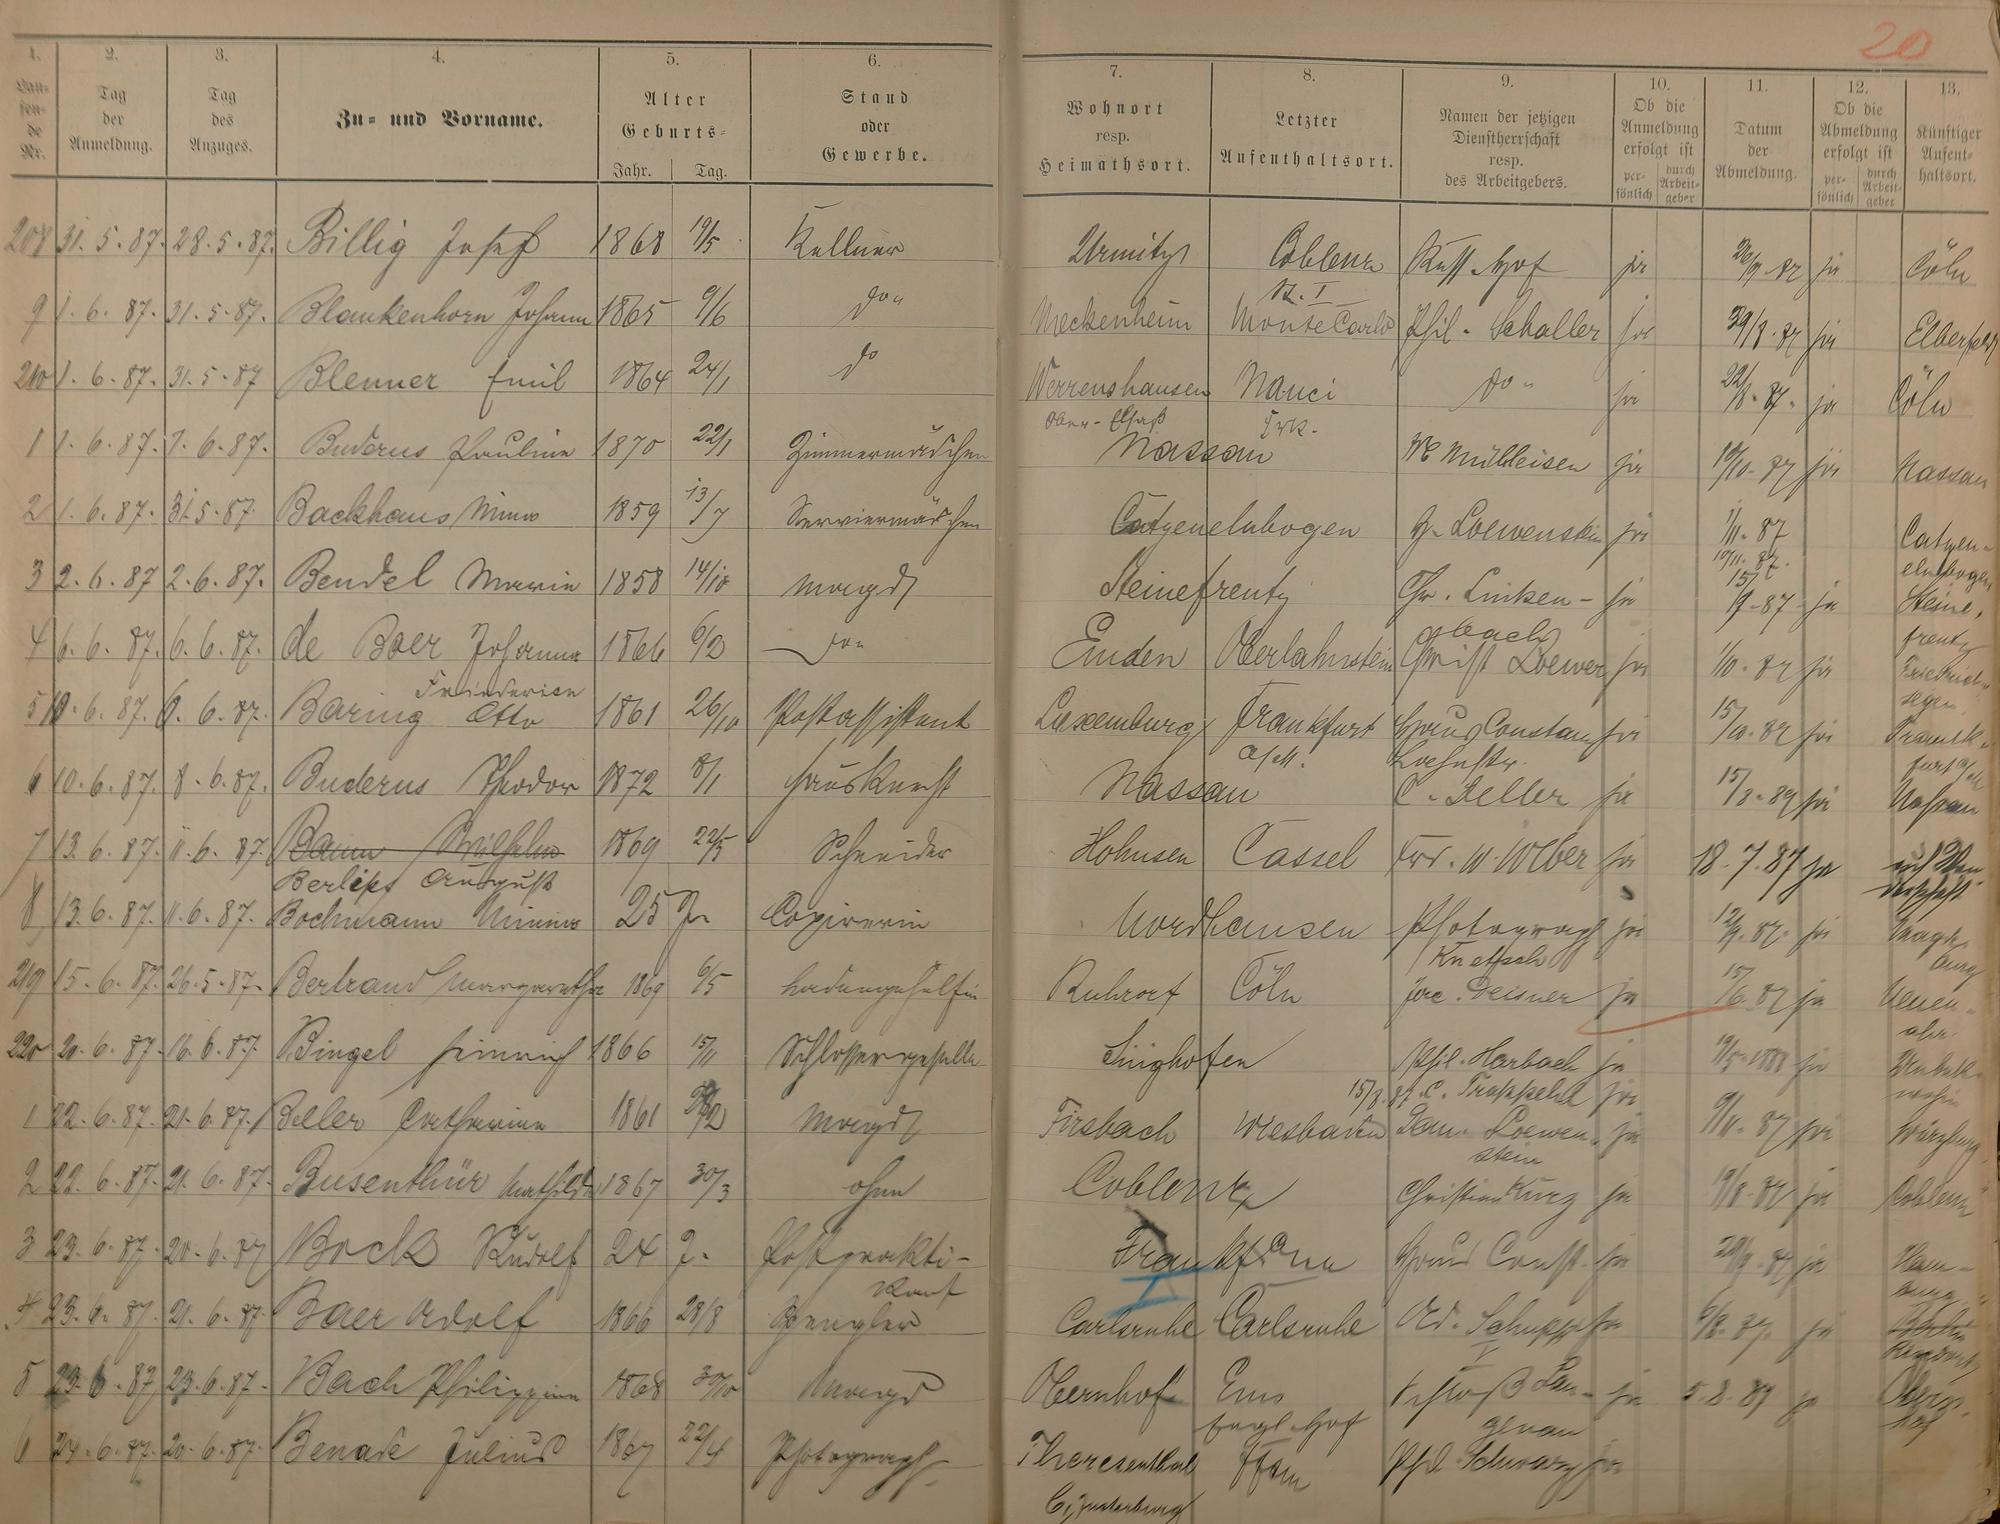 20
1. 2. 3. 4. 5. 6. 7. 8. 9. 10. 11. 12. 13.
Laufende Nr. Tag der Anmeldung. Tag des Anzuges. Zu- und Vorname. Alter Geburts- Jahr. Tag. Stand oder Gewerbe. Wohnort resp. Heimathsort. Letzter Aufenthaltsort. Namen der jetzigen Dienstherrschaft resp. des Arbeitgebers. Ob die Anmeldung erfolgt ist persönlich durch Arbeitgeber Datum der Abmeldung. Ob die Abmeldung erfolgt ist persönlich durch Arbeitgeber Künftiger Aufenthaltsort.
208 31.5.87. 28.5.87. Billig Josef 1868 19/5 Kellner Urmitz Coblenz Russ. Hof ja ja Cöln
9 1.6.87. 31.5.87. Blankenhorn Johann 1865 9/6 do Meckenheim Monte Carlo Phil. Schaller ja 29/8.87 ja Elberfeld
210 1.6.87. 31.5.87 Blenner Emil 1864 24/1 do Werrenshausen Nanci do ja 22/8.87. ja Cöln
Ober-Elsaß
1 1.6.87. 1.6.87. Buderus Pauline 1870 22/1 Zimmermädchen Nassau Mühleisen ja 19/10.87 ja Nassau
2 1.6.87. 31.5.87 Backhaus Minna 1859 13/7 Serviermädchen Catzenelnbogen H. Loewenstein ja 1/11.87 Catzenelnbogen
3 2.6.87 2.6.87. Bendel Maria 1858 14/10 Magd Steinefrenz Chr. Linkenbach ja 15/9.87 ja Steinefrenz
4 6.6.87. 6.6.87. de Boer Johanna 1866 6/2 do Emden Oberlahnstein Christ Loewer ja 1/10.87 ja Friedrichssegen
Friederich
5 6.87. 6.87. Baring Otto 1861 26/10 Postassistent Luxemburg Frankfurt a/M. Haus Constan ja 15/10.87 ja Frankfurt a/M
6 10.6.87. 8.6.87. Buderus Theodor 1872 8/1 Hausknecht Nassau C. Keller ja 15/8.89 ja Nassau
7 13.6.87. 11.6.87. Baum Wilhelm 1869 22/5 Schneider Hohnsen Cassel W. Weber ja 18.7.87 ja auf Wanderschaft
Berlips August
8 13.6.87. 11.6.87. Bochmann Minna 25 J. Copirerin Nordhausen Photograph ja 12/9.87. ja Magdeburg
219 15.6.87. 26.5.87. Bertrand Margaretha 1869 6/5 Ladengehülfin Ruhrort Cöln Jac. Deisner ja 15/6.87 ja Neuenahr
220 20.6.87. 16.6.87. Bingel Heinrich 1866 15/11 Schlossergeselle Singhofen Phil. Harbach ja 19/5.1888 ja Unbekannt wohin
15/8.87. C. Trappehl ja
1 22.6.87. 21.6.87. Beller Catharina 1861 Magd Firsbach Wiesbaden Sam. Loewenstein ja 9/11.87 ja Würzburg
2 22.6.87. 21.6.87. Busenthür Mathilde 1867 30/3 ohne Coblenz Christian Kurz ja 19/8.87 ja Coblenz
3 23.6.87. 20.6.87 Bock Rudolf 24 J. Postpraktikant Frankf a/M Haus Const. ja ja Hamburg
4 23.6.87. 21.6.87. Baer Adolf 1866 28/8 Spengler Carlsruhe Carlsruhe Ad. Schupp ja 6/8.87. ja
5 23.6.87 23.6.87. Bach Philippine 1868 30/10 Magd Obernhof Ems Schloß Langenau ja 5.8.89 ja Obernhof
Engl. Hof
6 24.6.87. 20.6.87. Benade Julius 1867 22/4 Photograph Theresenthal Phil. Schwarz ja